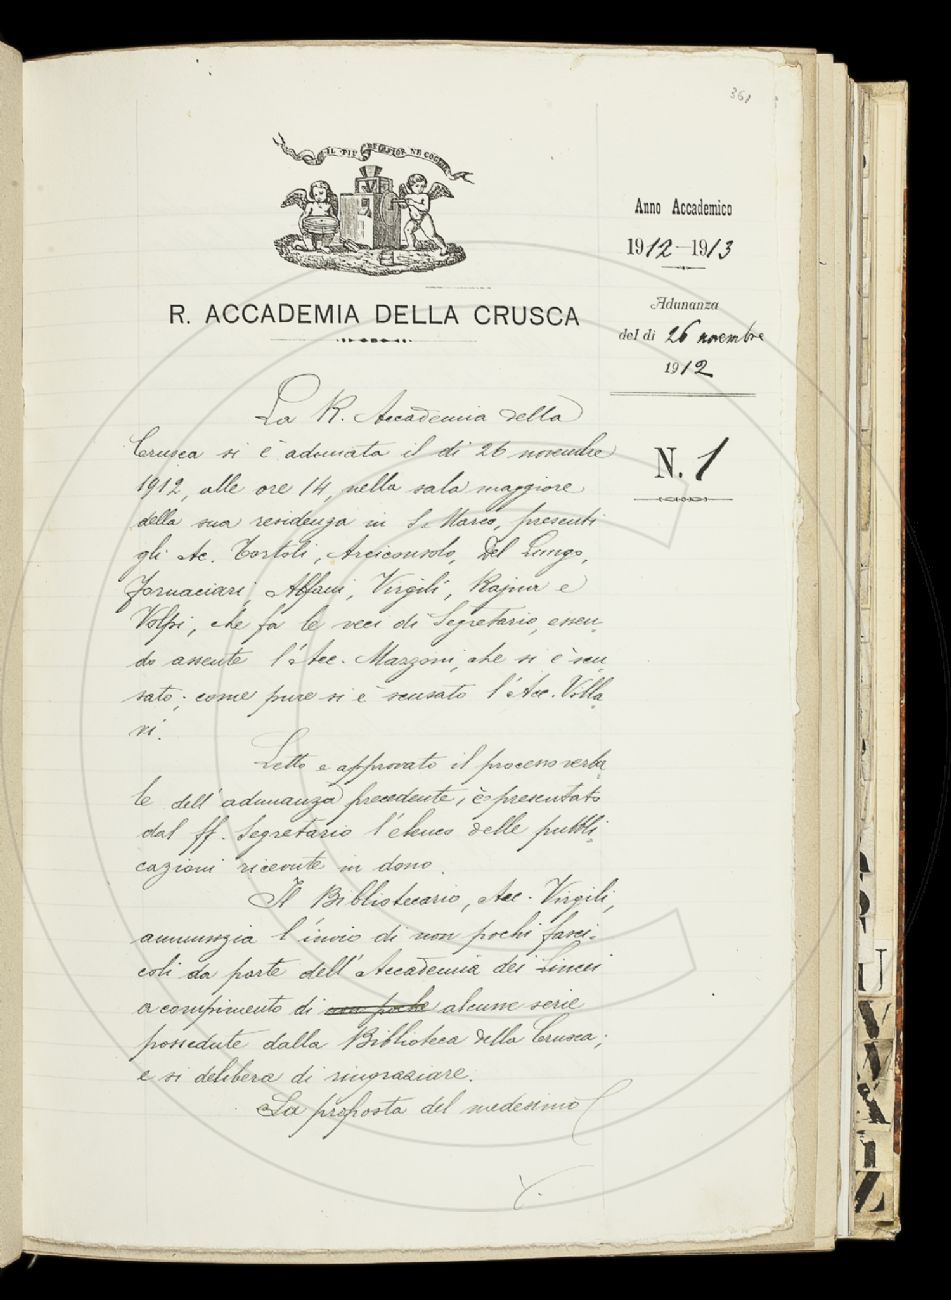 361
IL PIÙ BEL FIOR NE COGLIE
Anno Accademico
1912-1913
Adunanza
del dì 26 novembre
1912
N. 1
R. ACCADEMIA DELLA CRUSCA
La R. Accademia della
Crusca si è adunata il dì 26 novembre
1912, alle ore 14, nella sala maggiore
della sua residenza in S. Marco, presenti
gli Ac. Tortoli, Arciconsolo, Del Lungo,
Fornaciari, Alfani, Virgili, Rajna e
Volpi, che fa le veci di Segretario, essen-
do assente l'Acc. Mazzoni, che si è scu-
sato; come pure si è scusato l'Acc. Villa-
ri.
Letto e approvato il processo verba-
le dell'adunanza precedente, è presentato
dal ff. Segretario l'elenco delle pubbli-
cazioni ricevute in dono.
Il Bibliotecario, Acc. Virgili,
annunzia l'invio di non pochi fasci-
coli da parte dell'Accademia dei Lincei
a compimento di non poche alcune serie
possedute dalla Biblioteca della Crusca;
e si delibera di ringraziare.
La proposta del medesimo